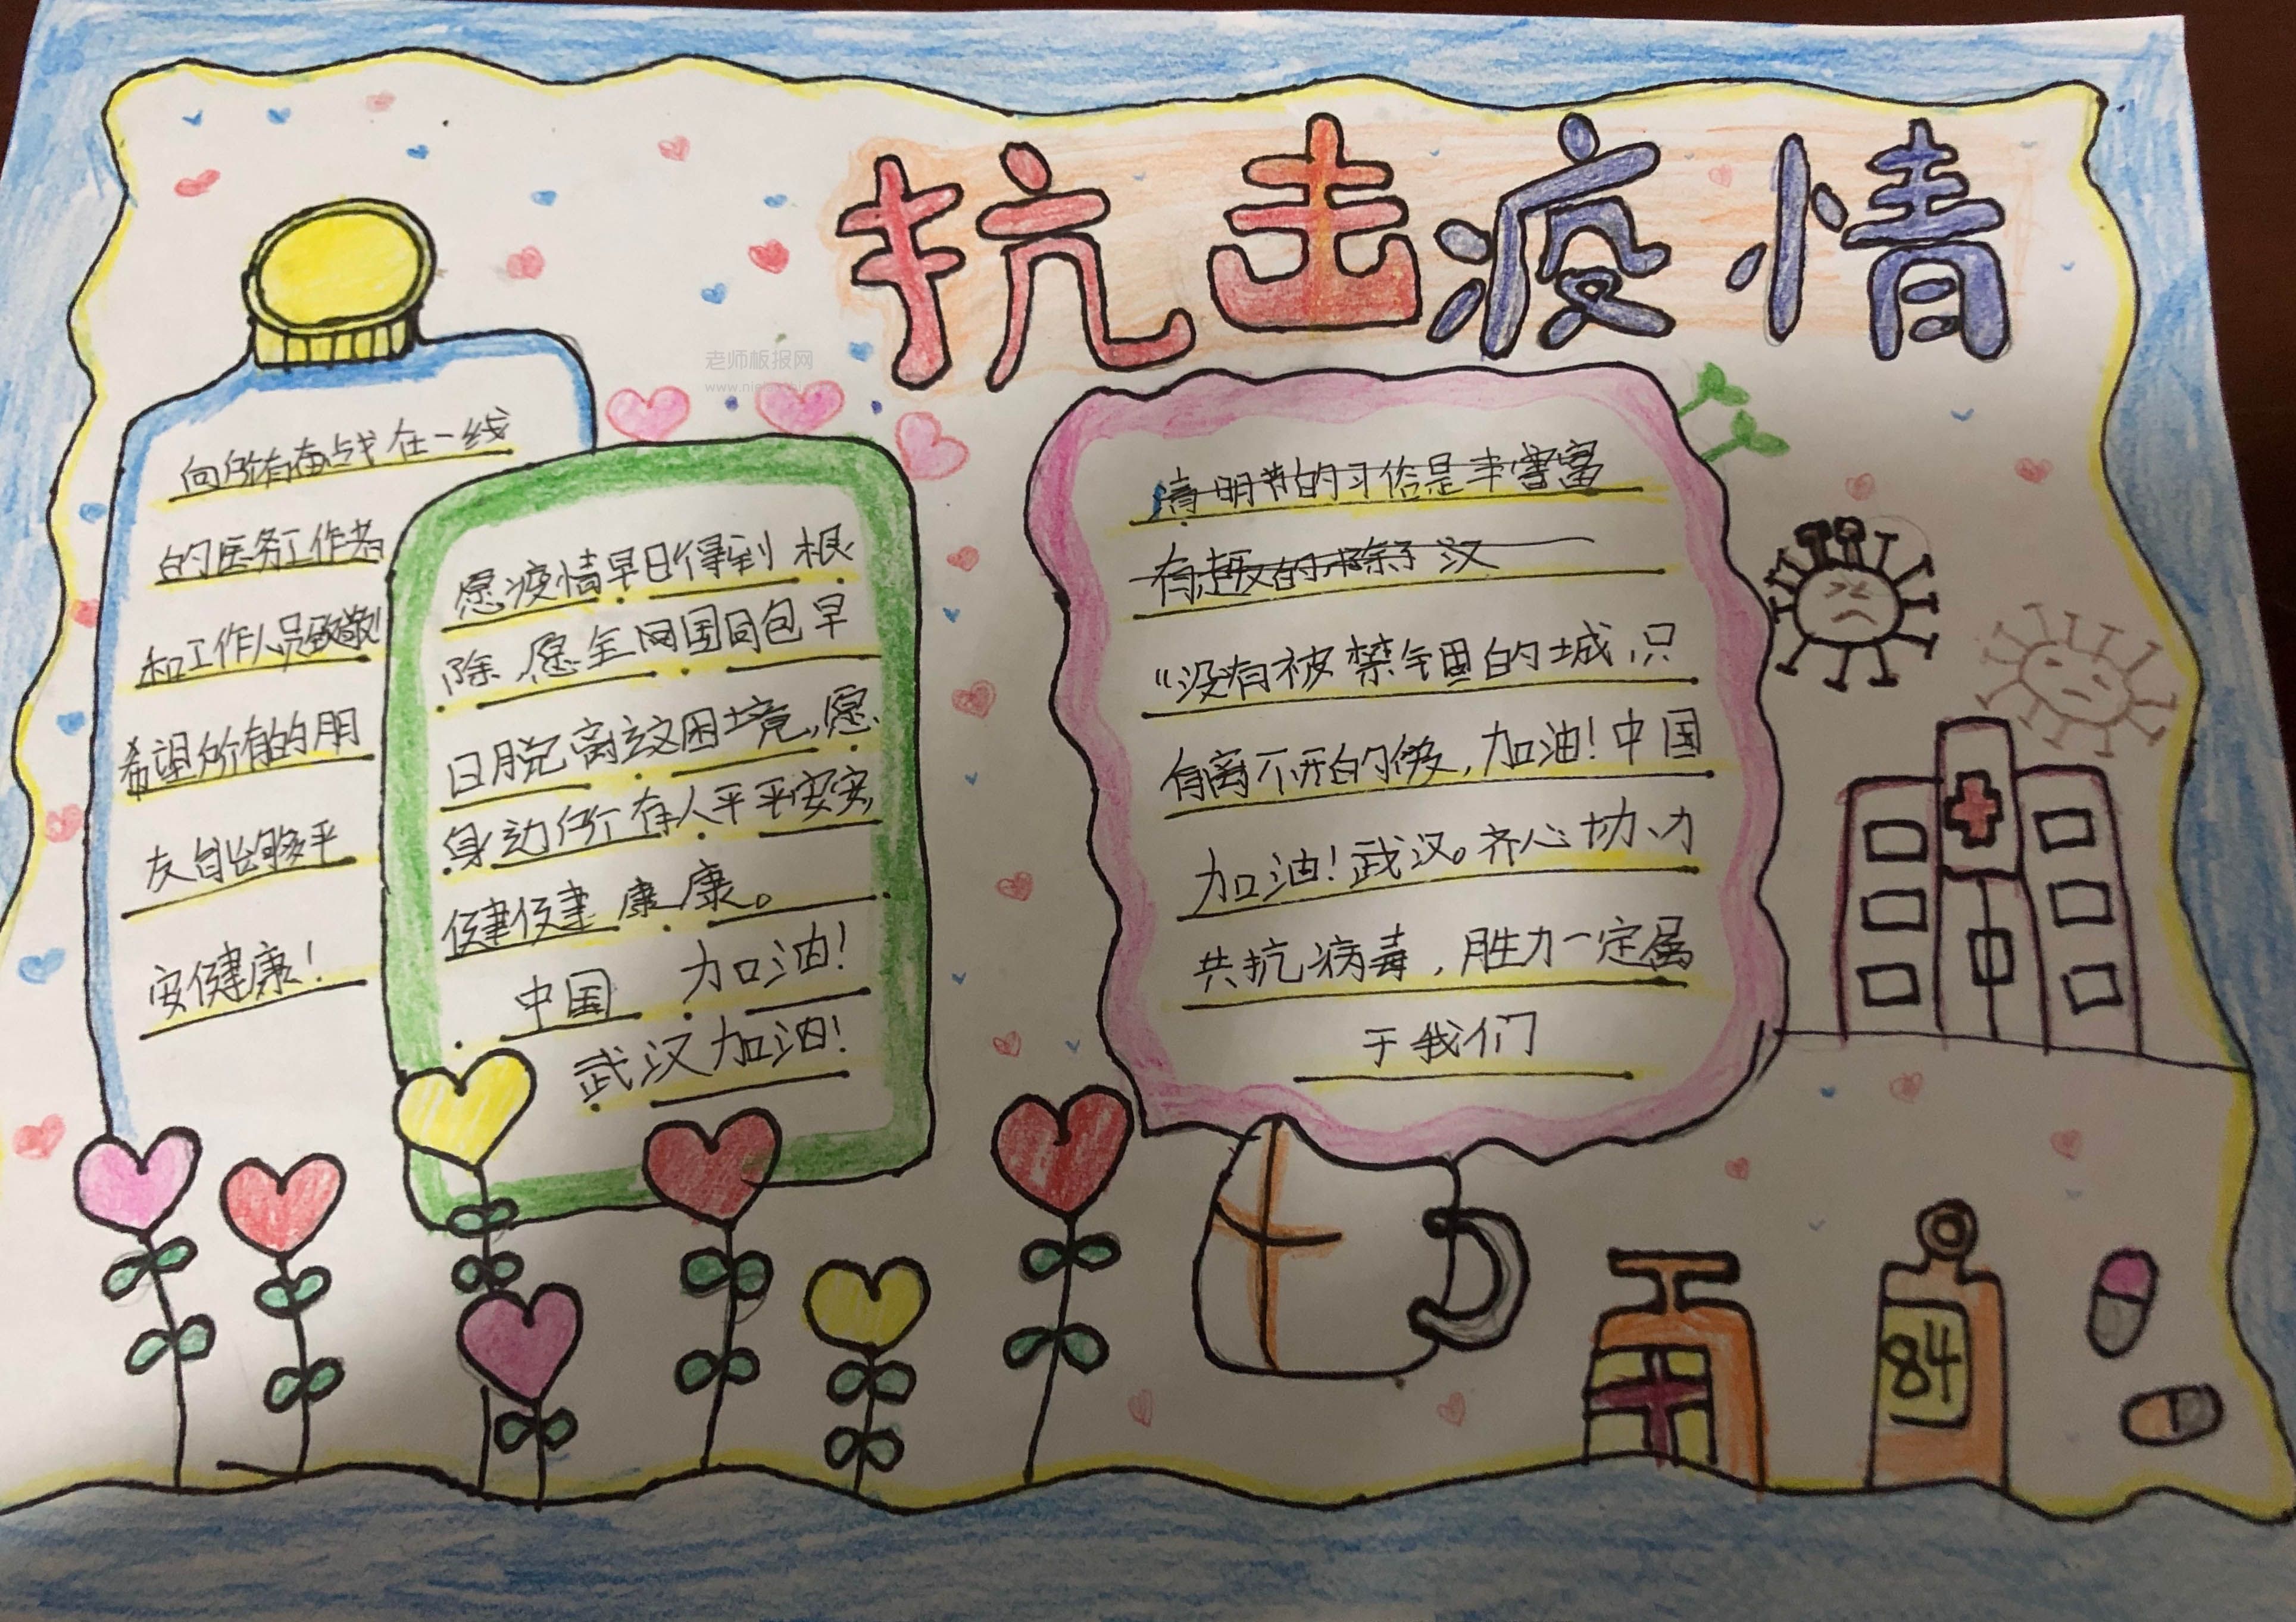 抗击疫情
老师板报网
向所有奋战在一线
的医务工作者
和工作人员致敬!
希望所有的朋
友自能够平
安健康!
愿疫情早日得到根
除,愿全网国同包早
日脱离这困境,愿
身边所有人平平安安,
健健康康。
中国 加油!
武汉加油!
清明节的习俗是丰富富
有趣的,除了汉
“没有被禁锢的城,只
有离不开的爱,加油!中国
加油!武汉。齐心协力
共抗病毒,胜力一定属
于我们
84